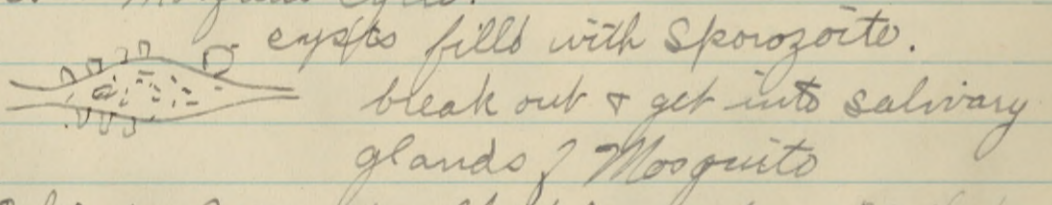 Mosquito Cycle.
cysts filld with Sporozoite.
break out & get into salivary
glands of Mosquito